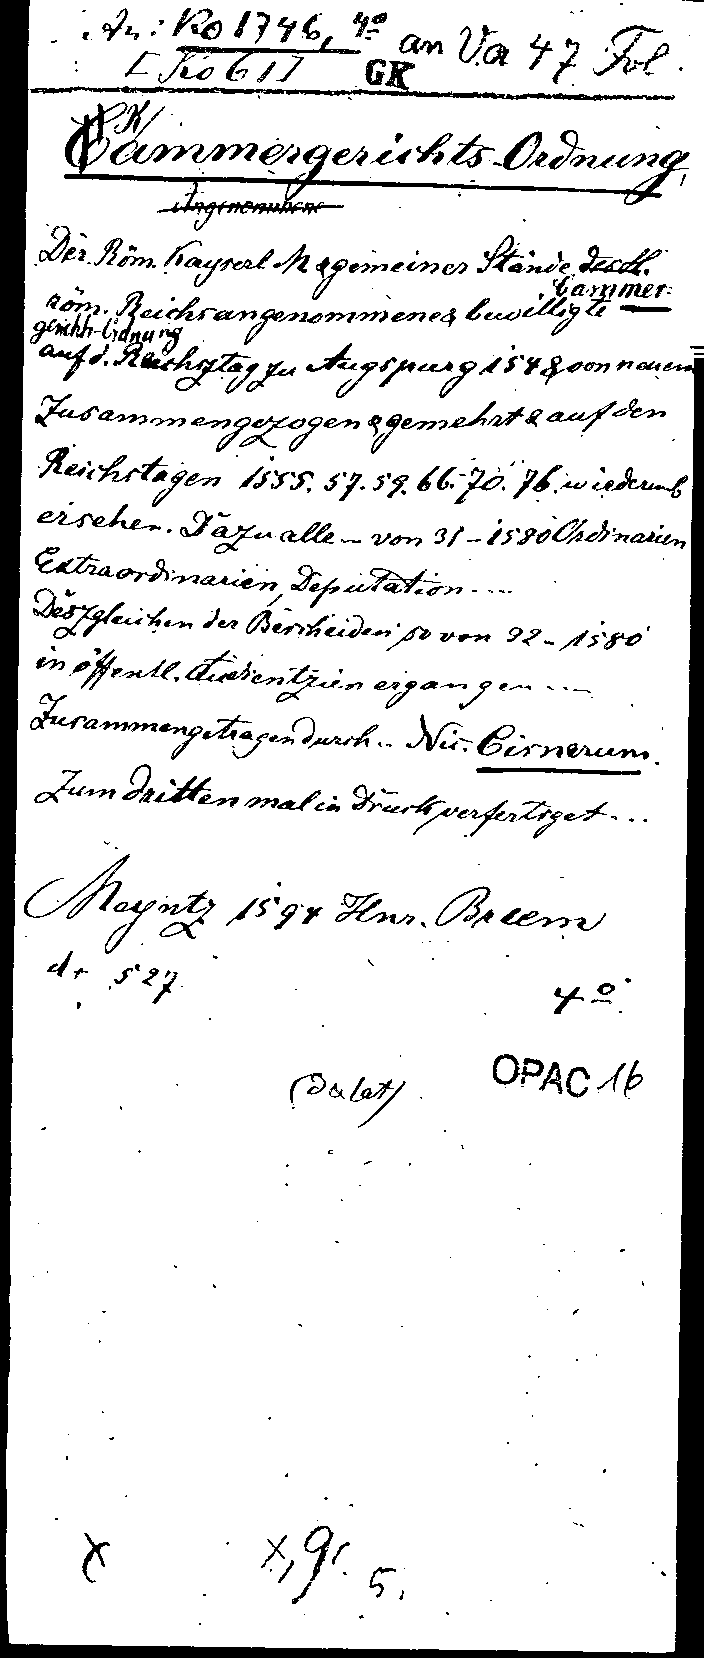 An: Ko 1746, 4º an Va 47 Fol.
[Ko 61] GK
K
Cammergerichts-Ordnung,
Angenommene
Der Röm. Kayserl M & gemeiner Stände des H.
Cammer-
röm. Reichs angenommene & bewilligte
gerichts-Ordnung
auf d. Reichsztag zu Augspurg 1548 von neuem
Zusammengezogen & gemehrt & auf den
Reichstagen 1555. 57. 59. 66. 70. 76. wiederumb
ersehen. Dazu alle - von 31 - 1580 Ordinarien
Extraordinarien, Deputation....
Deszgleichen der Bescheiden so von 32 - 1580
in öffentl. Audientzien ergangen ....
Zusammengetragen durch.. Nic. Cisnerum.
Zum dritten mal in Druck verfertiget...
Meyntz 1594 Hnr. Breem
527
4º
OPAC 16
x x, 9r. 5.